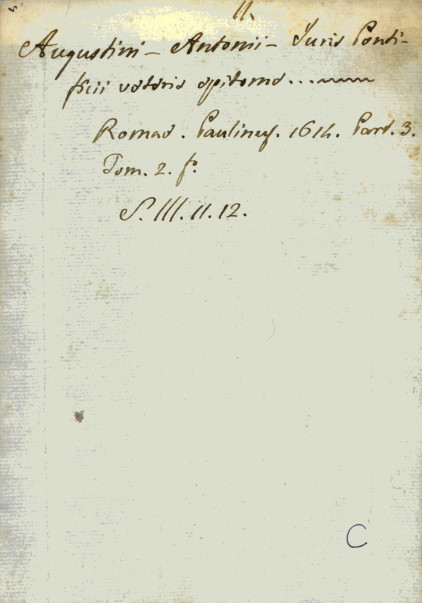 11.
Augustini - Antonii - Juris Ponti-
ficii veteris epitome...
Romae. Paulinus. 1614. Pard. 3.
Tom. 2. fº.
S. III. 11. 12.
C